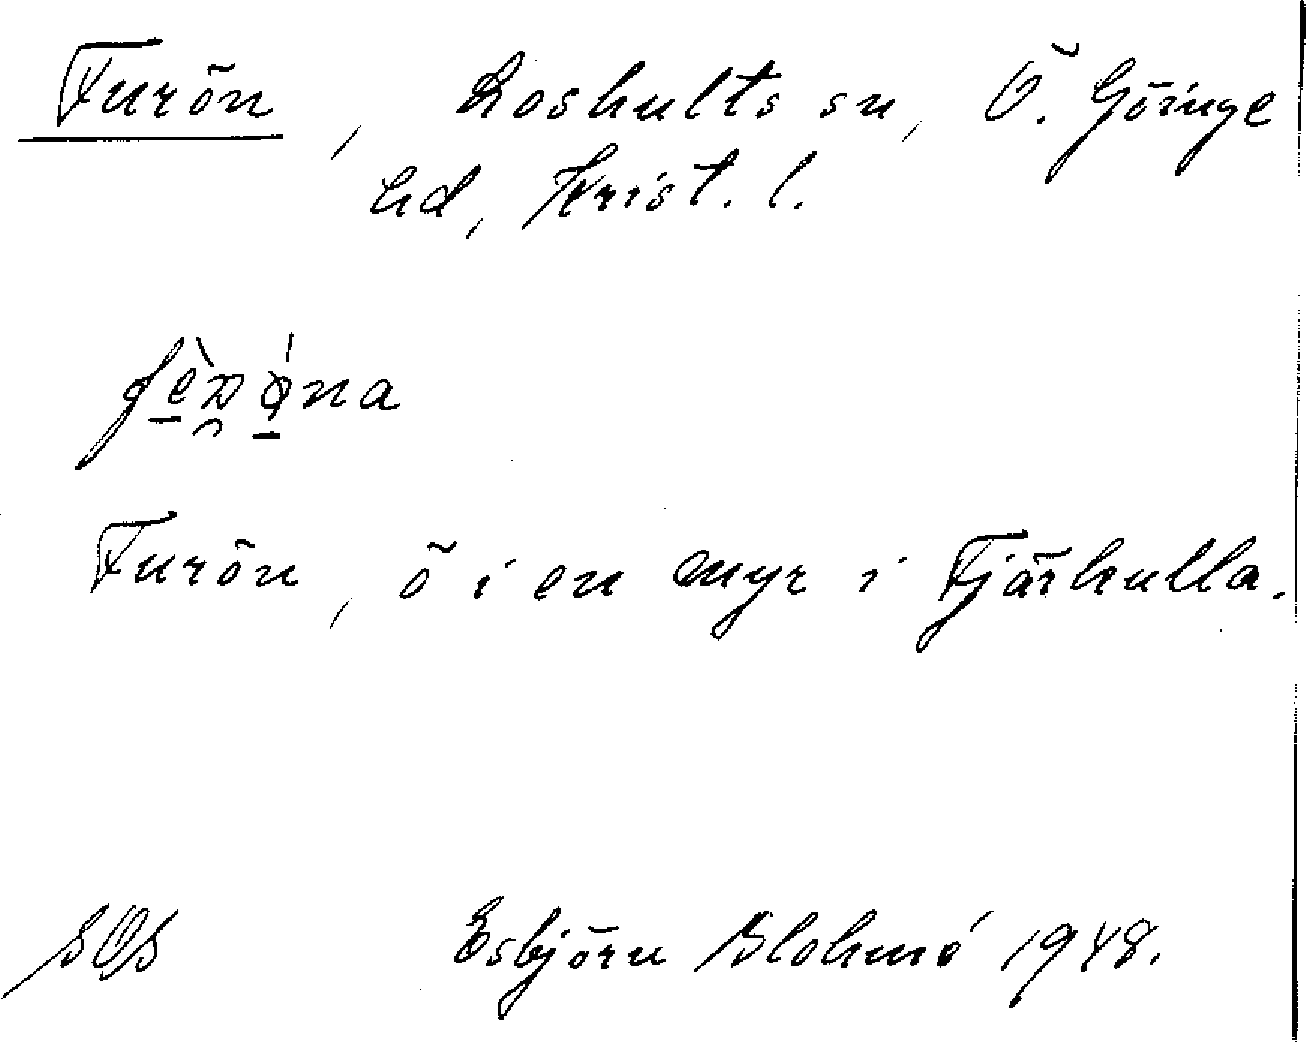 Furön, Loshults sn, Ö. Göinge
hd, Krist. l.
Furön, ö i en myr i Fjärhulla.
Esbjörn Blohmé 1948.